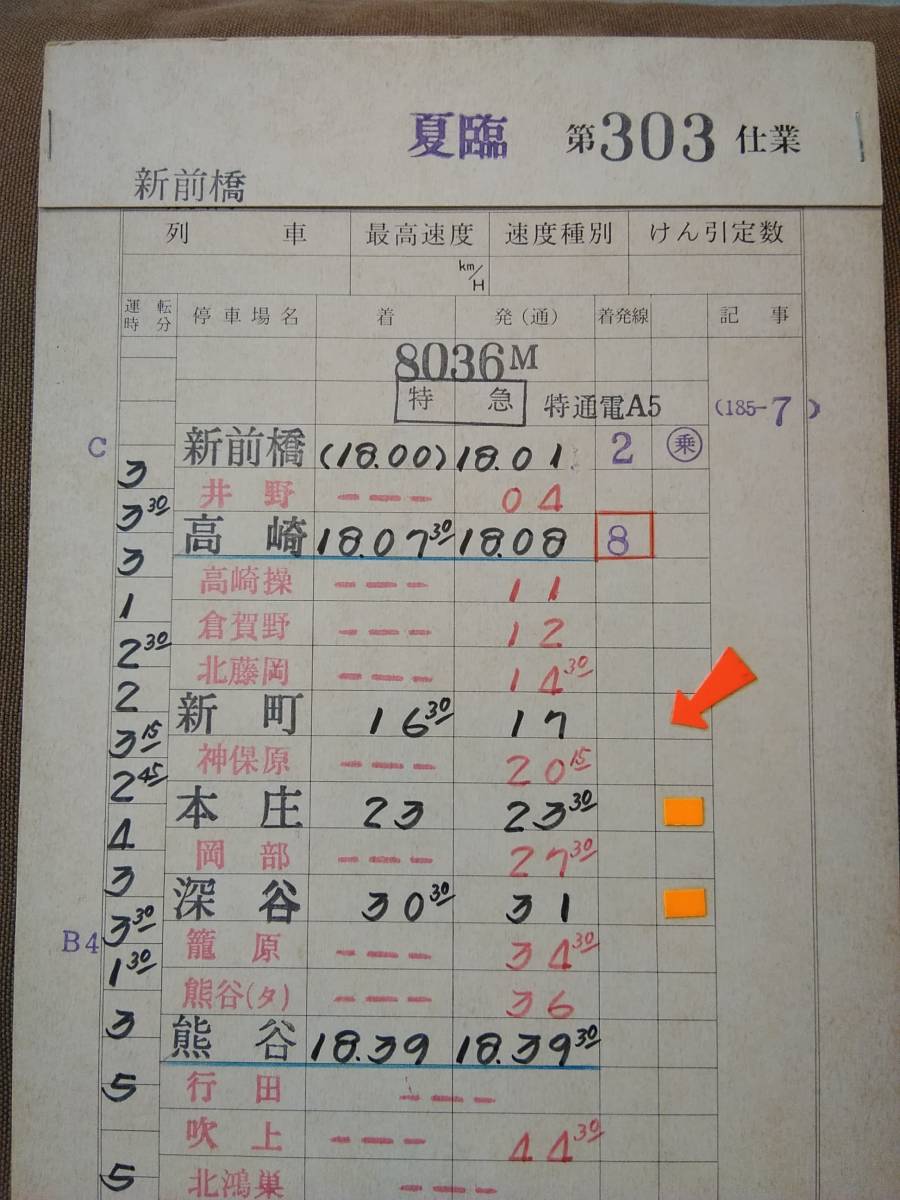 夏臨 第303仕業
新前橋
列車 最高速度 速度種別 けん引定数
km/H
運転時分 停車場名 着 発(通) 着発線 記事
8036M
特急 特通電A5 (185-7)
C 新前橋 (18.00) 18.01 2 乗
3
井野 --- 04
3 30
高崎 18.07 30 18.08 8
3
高崎操 --- 11
1
倉賀野 --- 12
2 30
北藤岡 --- 14 30
2
新町 16 30 17
3 15
神保原 --- 20 15
2 45
本庄 23 23 30
4
岡部 --- 27 30
3
深谷 30 30 31
3 30
B4 籠原 --- 34 30
1 30
熊谷(タ) --- 36
3
熊谷 18.39 18.39 30
5
行田 ---
吹上 --- 44 30
5
北鴻巣 ---